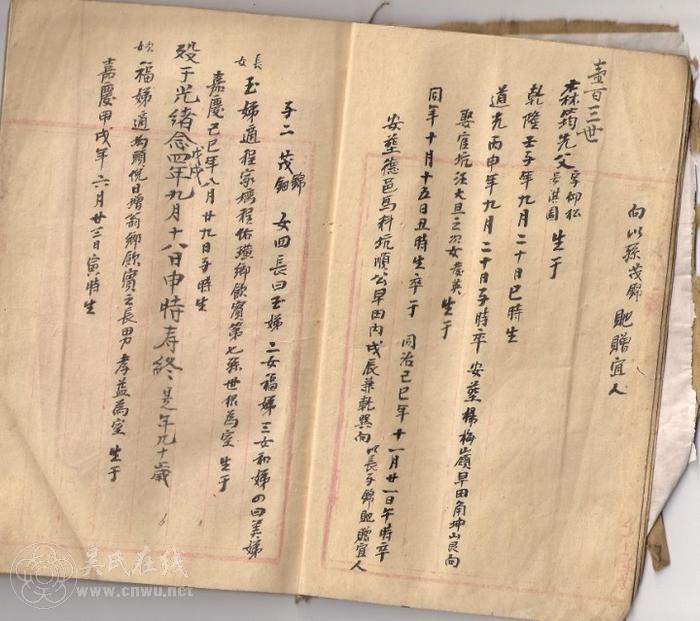 向以孫茂錦 貤贈宜人
壹百三世
森筠先父 字仰松 號淇園 生于
乾隆壬子年九月二十日巳時生
道光丙申年九月二十日子時卒 安塟楊梅山嶺旱田角坤山艮向
娶官坑汪大旦之次女 生于
同年十月十五日丑時生卒于 同治己巳年十一月廿一日午時卒
安塟德邑馬料坑順公旱田內戌辰兼乾巽向 以長子錦貤贈宜人
子二 茂錦 茂鈿 女四長曰玉娣 二女福娣 三女和娣 四曰美娣
長女 玉娣適程家塢程佑璜鄉飲賓第七孫世根為室 生于
嘉慶己巳年八月廿九日子時生
歿于光緒念四年戊戌九月十八日申時寿終是年九十歲
次女 福娣適 頭倪日增翁鄉飲賓之長男孝益為室 生于
嘉慶甲戌年六月廿三日寅時生
吴氏在线
www.cnwu.net